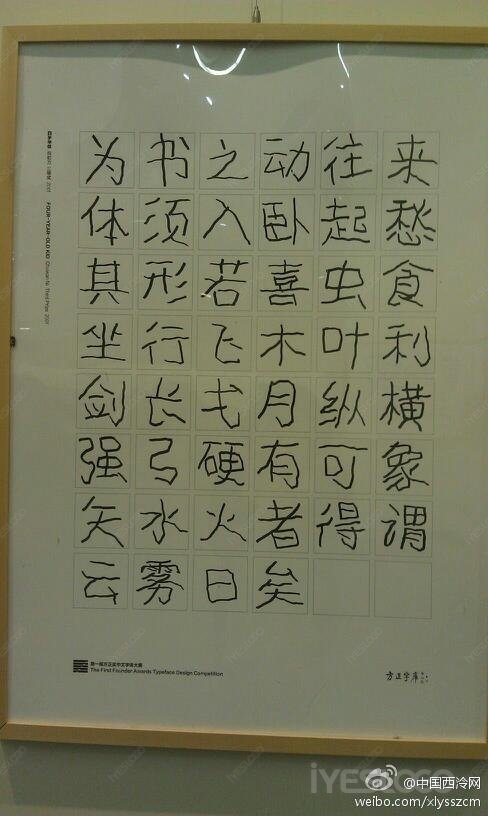 为书之动往来
体须入卧起愁
其形若喜虫食
坐行飞木叶利
剑长弋月纵横
强弓硬有可象
矢水火者得谓
云雾日矣
FOUR-YEAR-OLD KID
第一届方正奖中文字体大赛
The First Founder Awards Typeface Design Competition
方正字库
@中国西泠网
weibo.com/xlysszcm